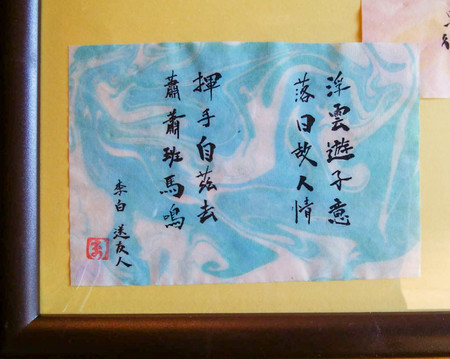 浮雲遊子意
落日故人情
揮手自茲去
蕭蕭班馬鳴
李白 送友人